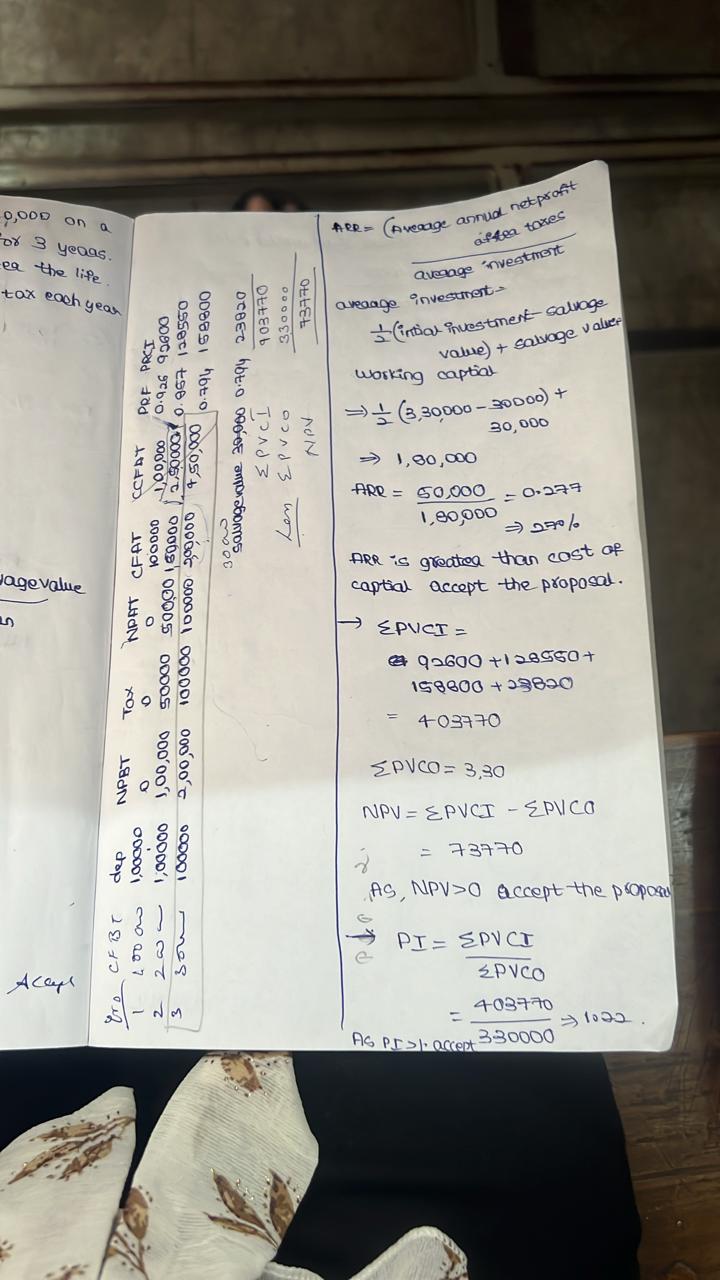 0,000 on a
for 3 years.
tax each year
Accept
Yrs CFBT dep NPBT Tax NPAT CFAT CCFAT PRF PRCI
1 100 000 1,00000 0 0 0 100000 1,00,000 0.926 92600
2 200 1,00000 1,00,000 50000 50000 150000 2,50000 0.857 128550
3 300 100000 2,00,000 100000 100000 200,000 4,50,000 0.794 158800
Salvage value 30,000 0.794 23820
ΣPVCI 403770
Less ΣPVCO 330000
NPV 73770
ARR = (Average annual net profit
after taxes
average investment
average investment =
1/2 (intial investment - salvage
value) + salvage value+
working captial
⇒ 1/2 (3,30,000 - 30000) +
30,000
⇒ 1,80,000
ARR = 50,000 / 1,80,000 = 0.277
⇒ 27%
ARR is greater than cost of
captial accept the proposal.
→ ΣPVCI =
92600 + 128550 +
158800 + 23820
= 403770
ΣPVCO = 3,30
NPV = ΣPVCI - ΣPVCO
= 73770
AS, NPV>0 accept the proposal
→ PI = ΣPVCI / ΣPVCO
= 403770 / 330000 ⇒ 1.22.
AS PI>1. accept